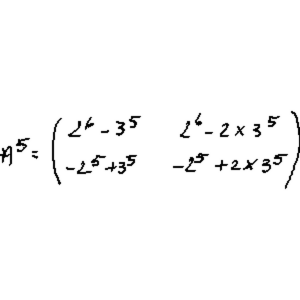 A⁵ = ( 2⁶ - 3⁵   2⁶ - 2 × 3⁵
-2⁵ + 3⁵   -2⁵ + 2 × 3⁵ )